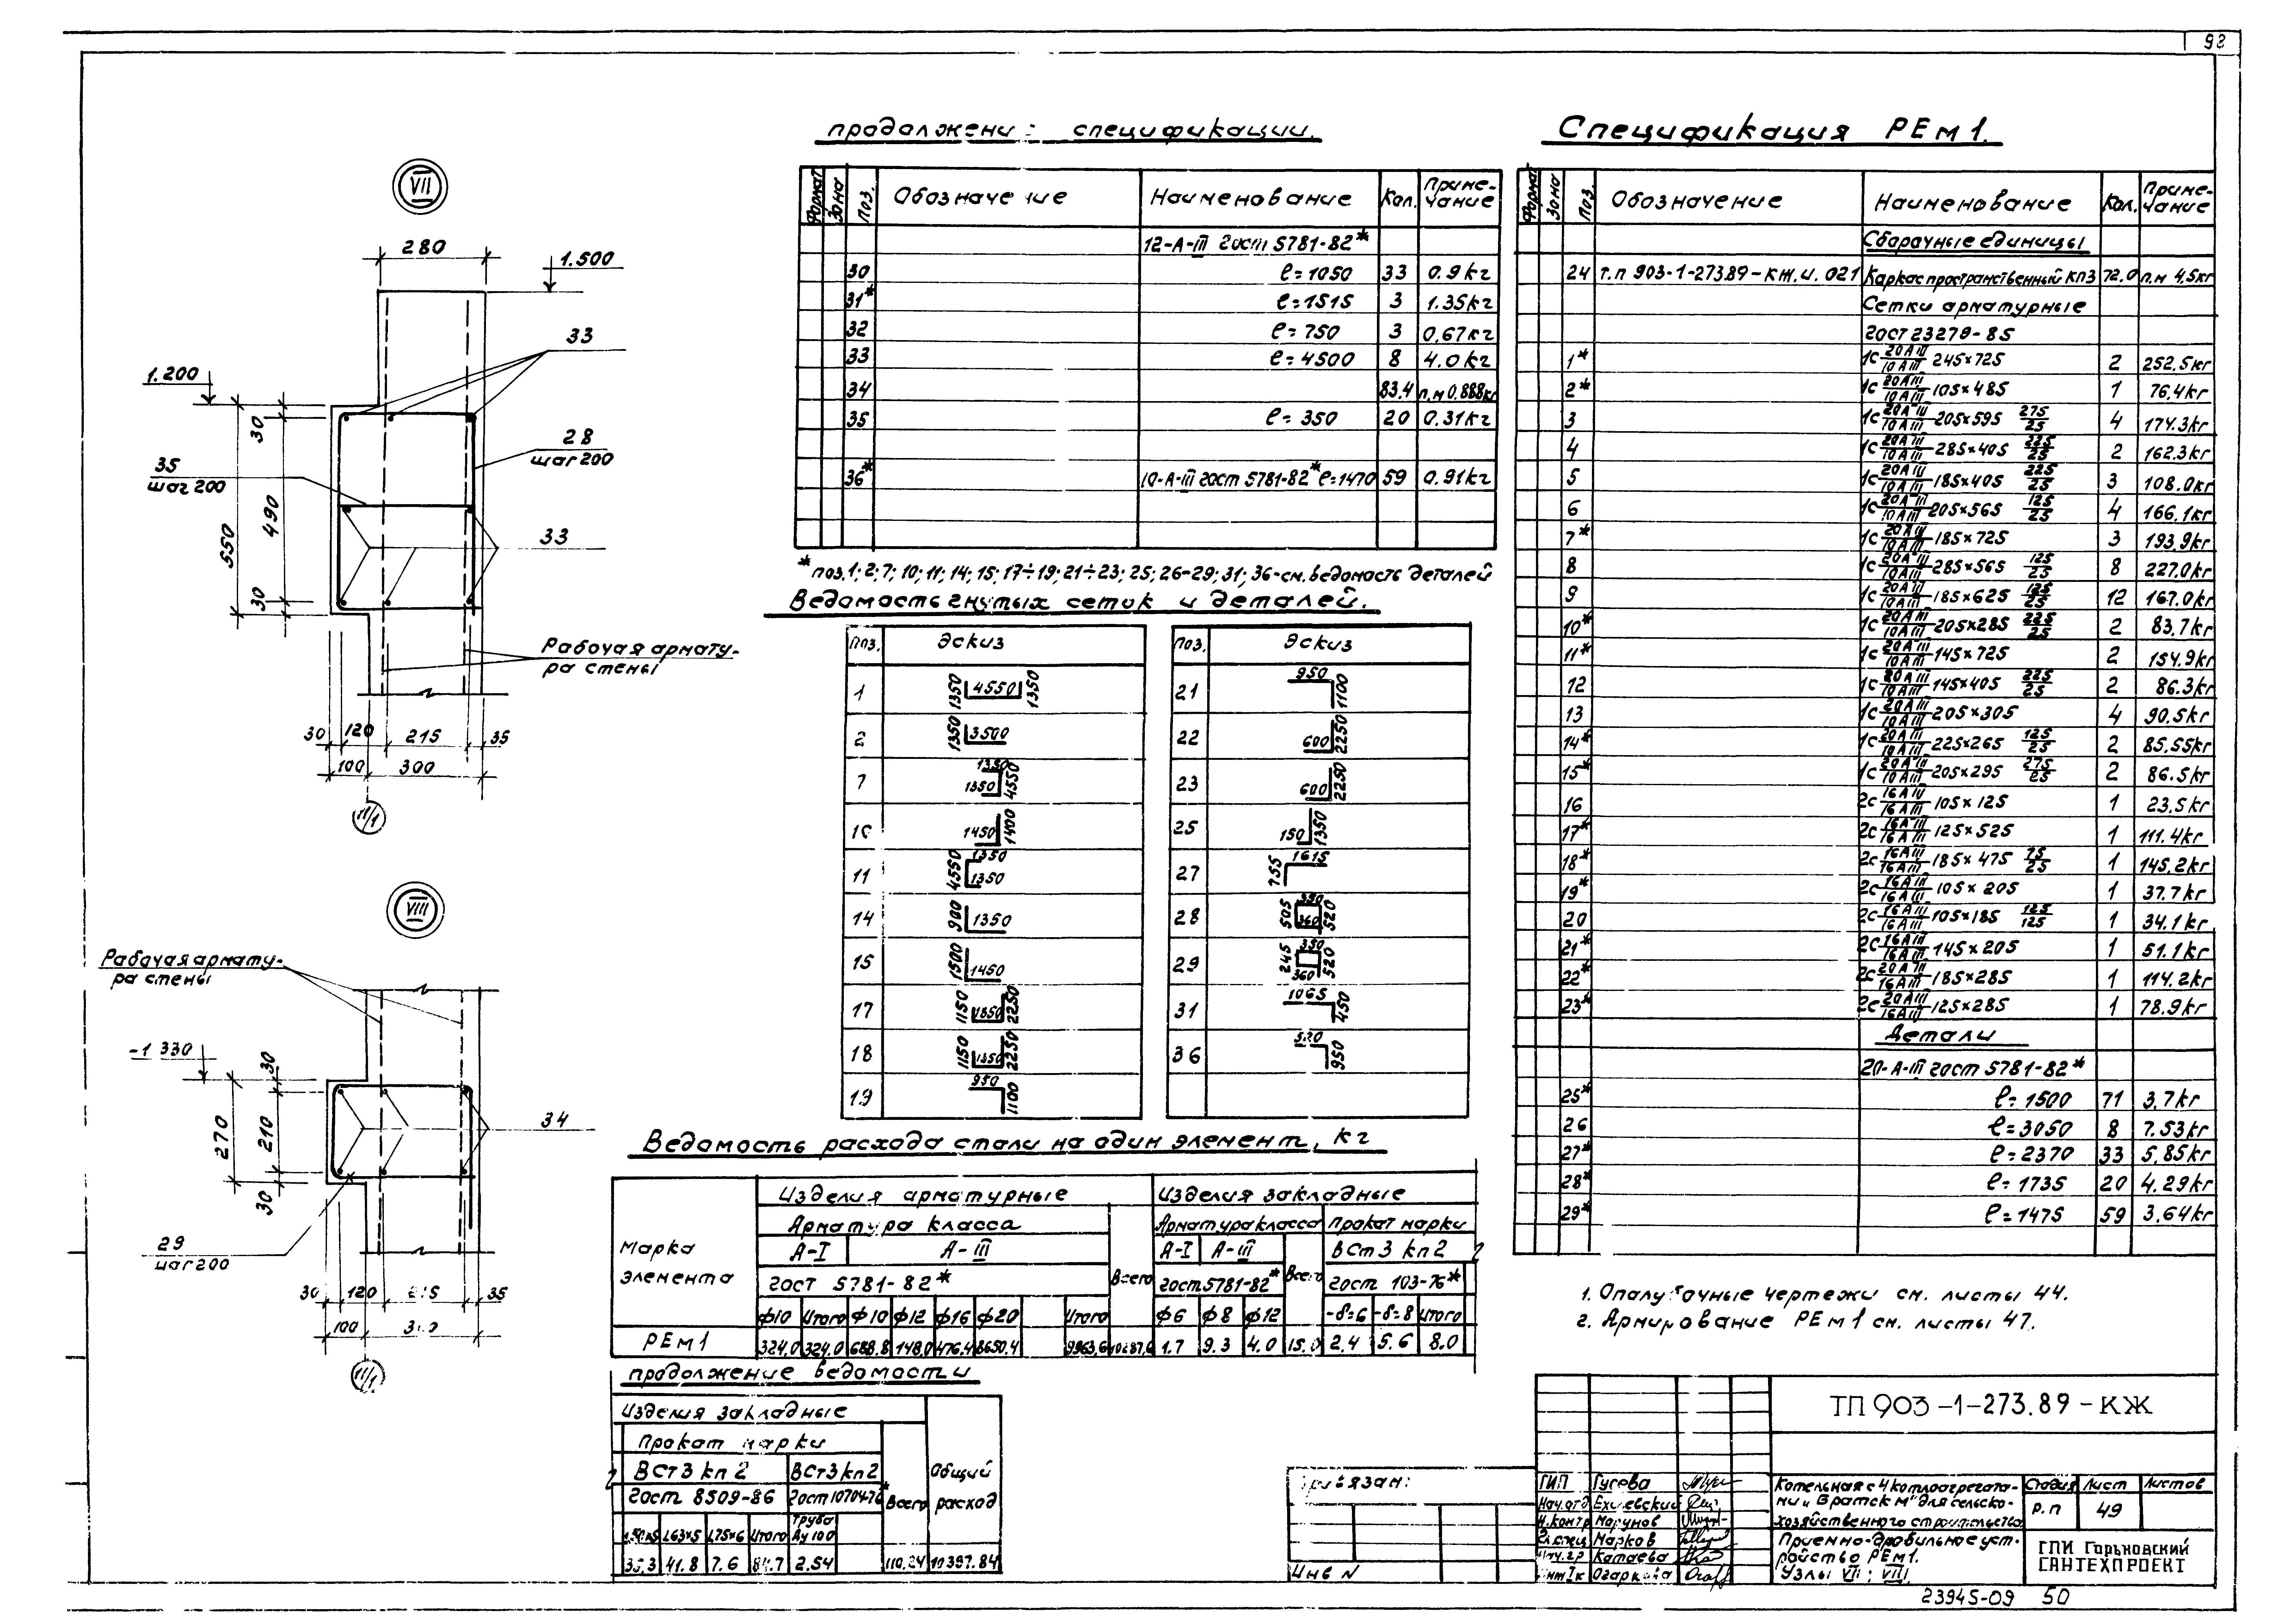 93
VII
280
1.500
33
1.200
30
28
шаг 200
35
шаг 200
490
550
33
30
Рабочая армату-
ра стены
30 120 215 35
100 300
11/1
VIII
Рабочая армату-
ра стены
-1 330
30
270
210
34
30
29
шаг 200
30 120 35
100
11/1
продолжени спецификации.
Формат Зона Поз. Обозначение Наименование Кол. Приме-
чание
12-А-III Гост 5781-82*
30 ℓ=1050 33 0.9кг
31* ℓ=1515 3 1.35кг
32 ℓ=750 3 0,67кг
33 ℓ=4500 8 4.0кг
34 83.4 п.м 0.888кг
35 ℓ=350 20 0.31кг
36* 10-А-III гост 5781-82* ℓ=1470 59 0.91кг
* поз.1; 2; 7; 10; 11; 14; 15; 17÷19; 21÷23; 25; 26-29; 31; 36-см. ведомость деталей
Ведомость гнутых сеток и деталей.
Поз. Эскиз
1 1350 4550 1350
2 1350 3500
7 1350 1350 4550
10 1450 1400
11 4550 1350 1350
14 900 1350
15 1500 1450
17 1150 1850 2250
18 1150 1350 2250
19 950 1100
Поз. Эскиз
21 950 1100
22 600 2250
23 600 2250
25 150 1350
27 755 1615
28 505 350 360 520
29 245 350 360 520
31 1065 450
36 520 950
Ведомость расхода стали на один элемент, кг
Марка элемента
Изделия арматурные Изделия закладные
Арматура класса Всего Арматура класса Всего Прокат марки
А-I А-III А-I А-III ВСт3 кп2
гост 5781-82* гост 5781-82* гост 103-76*
ф10 Итого ф10 ф12 ф16 ф20 Итого ф6 ф8 ф12 -δ=6 -δ=8 Итого
РЕм1 324,0 324,0 688.8 148,0 476,4 8650.4 9963,6 1.7 9.3 4.0 15.0 2.4 5.6 8.0
продолжение ведомости
Изделия закладные
Прокат марки Всего Общий
расход
ВСт3 кп2 ВСт3кп2
Гост 8509-86 Гост10704-76*
L50x5 L63x5 L75x6 Итого Труба
Ду100
35.3 41.8 7.6 84.7 2.54 110.24 10397.84
Спецификация РЕм1.
Формат Зона Поз. Обозначение Наименование Кол. Приме-
чание
Сборочные единицы
24 т.п 903-1-273.89-КЖ.И.021 Каркас пространственный КП3 72.0 п.м 4,5кг
Сетки арматурные
ГОСТ 23279-85
1* 1С 20АIII/10АIII 245×725 2 252.5кг
2* 1С 20АIII/10АIII 105×485 1 76.4кг
3 1С 20АIII/10АIII 205×595 275/25 4 174.3кг
4 1С 20АIII/10АIII 285×405 225/25 2 162.3кг
5 1С 20АIII/10АIII 185×405 225/25 3 108.0кг
6 1С 20АIII/10АIII 205×565 125/25 4 166.1кг
7* 1С 20АIII/10АIII 185×725 3 193.9кг
8 1С 20АIII/10АIII 285×565 125/25 8 227.0кг
9 1С 20АIII/10АIII 185×625 125/25 12 167.0кг
10* 1С 20АIII/10АIII 205×285 225/25 2 83.7кг
11* 1С 20АIII/10АIII 145×725 2 154.9кг
12 1С 20АIII/10АIII 145×405 225/25 2 86.3кг
13 1С 20АIII/10АIII 205×305 4 90.5кг
14* 1С 20АIII/10АIII 225×265 125/25 2 85.55кг
15* 1С 20АIII/10АIII 205×295 275/25 2 86.5кг
16 2С 16АIII/16АIII 105×125 1 23.5кг
17* 2С 16АIII/16АIII 125×525 1 111.4кг
18* 2С 16АIII/16АIII 185×475 75/25 1 145.2кг
19* 2С 16АIII/16АIII 105×205 1 37.7кг
20 2С 16АIII/16АIII 105×185 125/125 1 34.1кг
21* 2С 16АIII/16АIII 145×205 1 51.1кг
22* 2С 20АIII/16АIII 185×285 1 114.2кг
23* 2С 20АIII/16АIII 125×285 1 78.9кг
Детали
20-А-III гост 5781-82*
25* ℓ=1500 71 3.7кг
26 ℓ=3050 8 7.53кг
27* ℓ=2370 33 5.85кг
28* ℓ=1735 20 4.29кг
29* ℓ=1475 59 3.64кг
1. Опалубочные чертежи см. листы 44.
2. Армирование РЕм1 см. листы 47.
ТП 903-1-273.89-КЖ
Привязан:
Инв N
ГИП Гусева
Нач.отд Ехилевский
Н.контр Марунов
Гл.спец Марков
Катаева
Огаркова
Котельная с 4 котлоагрегата-
ми "Братск М" для сельско-
хозяйственного строительства
Стадия Лист Листов
Р.п 49
Приемно-дробильное уст-
ройство РЕм1.
Узлы VII; VIII.
ГПИ Горьковский
САНТЕХПРОЕКТ
23945-09 50